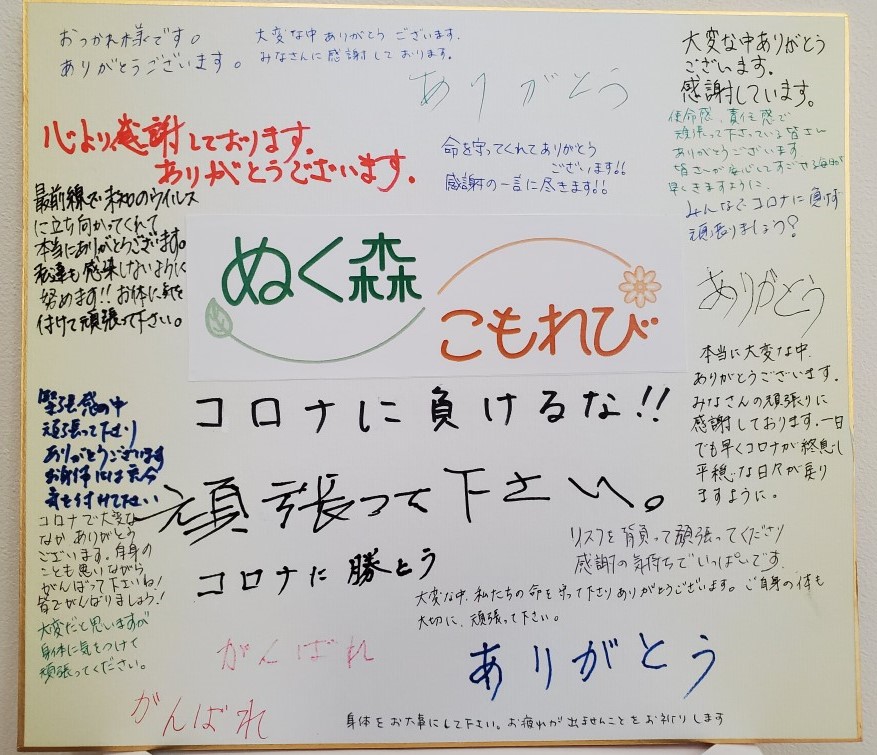 おつかれ様です。
ありがとうございます。
大変な中 ありがとう ございます.
みなさんに感謝して おります.
ありがとう
大変な中ありがとう
ございます.
感謝しています。
使命感、責任感で
頑張って下さっている皆さん
ありがとうございます
皆さんが安心してすごせる毎日が
早くきますように.
みんなでコロナに負けず
頑張りましょう?
心より感謝しております.
ありがとうございます.
命を守ってくれてありがとう
ございます!!
感謝の一言に尽きます!!
最前線で未知のウイルス
に立ち向かってくれて
本当にありがとうございます。
私達も感染しないように
努めます!! お体に気を
付けて頑張って下さい。
ぬく森
こもれび
ありがとう
本当に大変な中.
ありがとうございます.
みなさんの頑張りに
感謝しております.一日
でも早くコロナが終息し
平穏な日々が戻り
ますように。
コロナに負けるな!!
緊張感の中
頑張って下さり
ありがとうございます
お身体には
気を付けて下さい
頑張って下さい。
コロナで大変な
なか ありがとう
ございます.自身の
ことも思いながら
がんばって下さいね!
皆でがんばりましょう!
コロナに勝とう
リスクを背負って頑張ってくださり
感謝の気持ちでいっぱいです.
大変な中、私たちの命を守って下さりありがとうございます。ご自身の体も
大切に、頑張って下さい。
大変だと思いますが
身体に気をつけて
頑張ってください。
がんばれ
ありがとう
がんばれ
身体をお大事にして下さい。お疲れが出ませんことをお祈りします